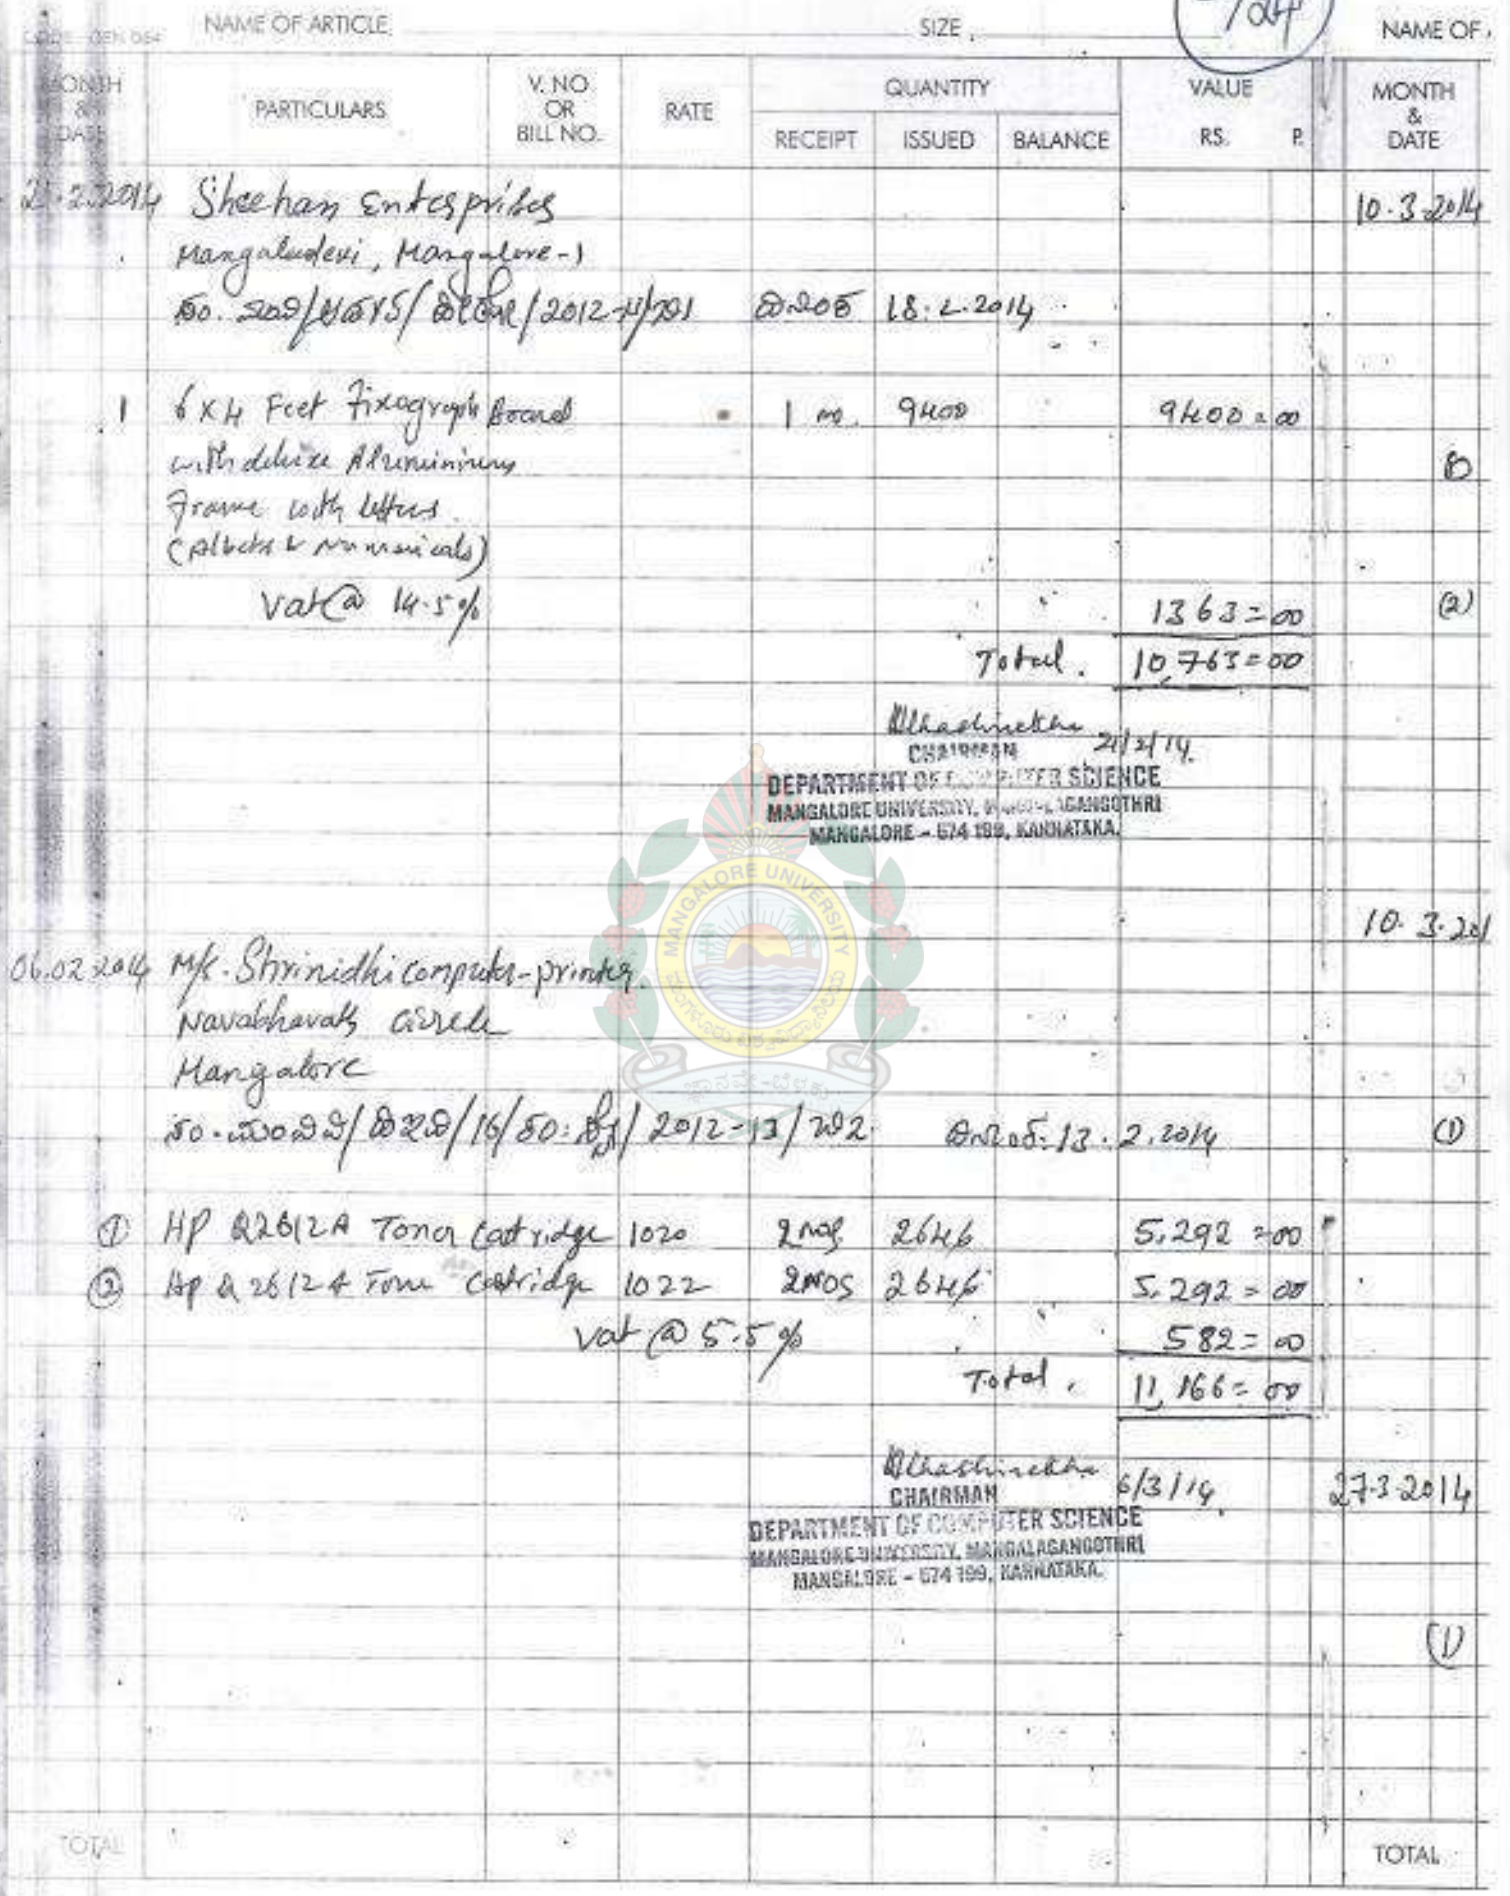 CODE GEN 064 NAME OF ARTICLE SIZE 724 NAME OF
MONTH & DATE PARTICULARS V. NO. OR BILL NO. RATE QUANTITY VALUE MONTH & DATE
RECEIPT ISSUED BALANCE RS. P.
21.2.2014 Sheehan Enterprises 10.3.2014
Mangaladevi, Mangalore-1
ದಿನಾಂಕ 18.2.2014
1 6 x 4 Feet Fixograph Board 1 no. 9400 9400=00
with deluxe Aluminium
Frame with letters
Vat @ 14.5% 1363=00 (2)
Total. 10,763=00
CHAIRMAN 21/2/14.
DEPARTMENT OF COMPUTER SCIENCE
MANGALORE UNIVERSITY, MANGALAGANGOTHRI
MANGALORE - 574 199, KARNATAKA.
MANGALORE UNIVERSITY
10.3.201
06.02.2014 M/s. Shrinidhi computer-printer.
Navabharath circle
Mangalore
2012-13 ದಿನಾಂಕ: 13.2.2014 (1)
① HP Q2612A Toner Catridge 1020 2 nos. 2646 5,292=00
② Hp Q 2612 A Tone Catridge 1022 2 nos 2646 5,292=00
Vat @ 5.5% 582=00
Total. 11,166=00
CHAIRMAN 6/3/14. 27-3-2014
DEPARTMENT OF COMPUTER SCIENCE
MANGALORE UNIVERSITY, MANGALAGANGOTHRI
MANGALORE - 574 199, KARNATAKA.
(1)
TOTAL TOTAL